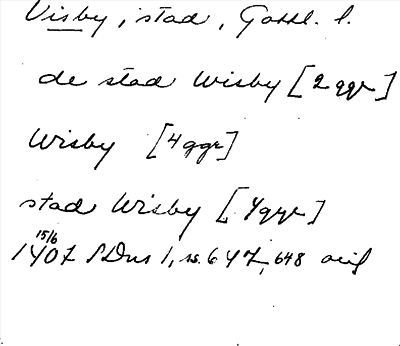 Visby, stad, Gottl. l.
de stad Wisby [2 ggr]
Wisby [4 ggr]
stad Wisby [4 ggr]
15/6
1407 SDns 1, s. 647, 648 orig